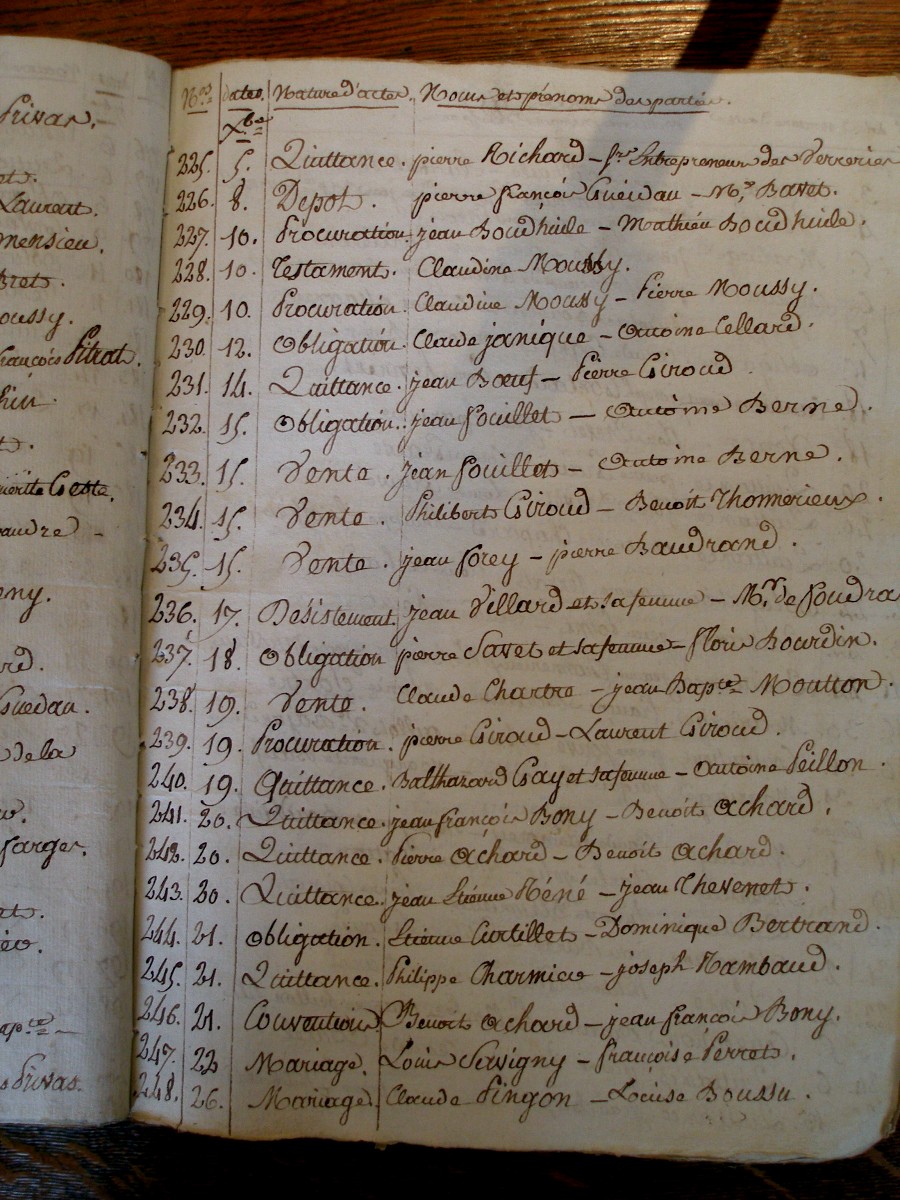 Privas.
et.
Laurent.
mensieu.
Brets.
oussy.
françois Pitrat.
hin.
t.
Geste.
audre -
eny.
rd.
Guedau.
dela
farges.
et.
apte -
s Privas.
Nos dates. Nature d'actes. Noms et prénoms des parties.
Xbre
225. 5. Quittance. pierre Richard - Srs Entrepreneurs des Verreries
226. 8. Depot. pierre françois Guédau - Mr. Bavet.
227. 10. Procuration. jean Boudhuile - Mathieu Boudhuile.
228. 10. Testament. Claudine Moussy.
229. 10. Procuration. Claudine Moussy - Pierre Moussy.
230. 12. Obligation. Claude janique - Antoine Cellard.
231. 14. Quittance. jean Bœuf - Pierre Giroud
232. 15. Obligation. jean Pouillet - Antoine Berne.
233. 15. Vente. jean Pouillet - Antoine Berne.
234. 15. Vente. Philibert Giroud - Benoit Thomerieux.
235. 15. Vente. jean forey - pierre Baudrand.
236. 17. Desistement. jean Villard et sa femme - Mr. de Foudra
237. 18. Obligation pierre Savet et sa femme - floris Bourdin.
238. 19. Vente. Claude Chartre - jean Bapte Moutton.
239. 19. Procuration. pierre Giroud - Laurent Giroud.
240. 19. Quittance. Balthazard Gay et sa femme - Antoine Peillon.
241. 20. Quittance. jean françois Bony - Benoit Achard.
242. 20. Quittance. Pierre Achard - Benoit Achard.
243. 20. Quittance. jean Etienne Néné - jean Thevenet.
244. 21. Obligation. Etienne Curtillet - Dominique Bertrand.
245. 21. Quittance. Philippe Charmieu - joseph Rambaud.
246. 21. Convention. Benoit Achard - jean françois Bony.
247. 22 Mariage. Louis Savigny - françoise Perret.
248. 26. Mariage. Claude Pingon - Louise Boussu.